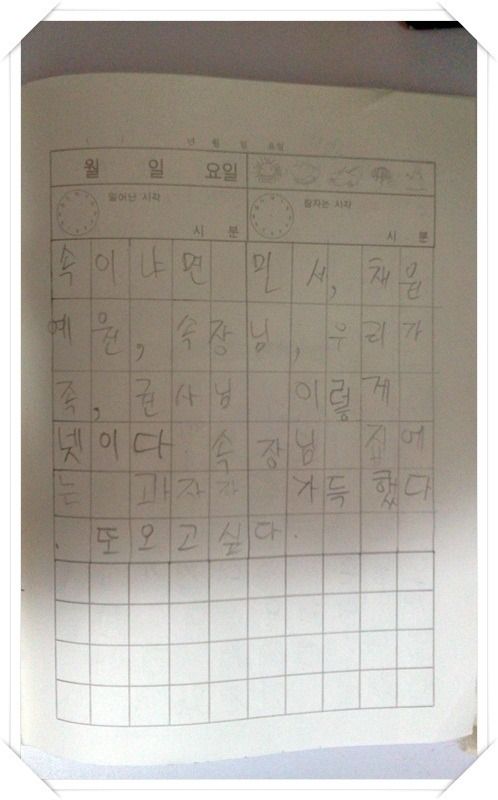 년 월 일 요일
월 일 요일
일어난 시각 잠자는 시각
시 분 시 분
속이냐면 민서, 채원
예원, 속장님, 우리가
족, 권사님 이렇게
넷이다 속장님 집에
는 과자자 가득했다
. 또오고싶다.